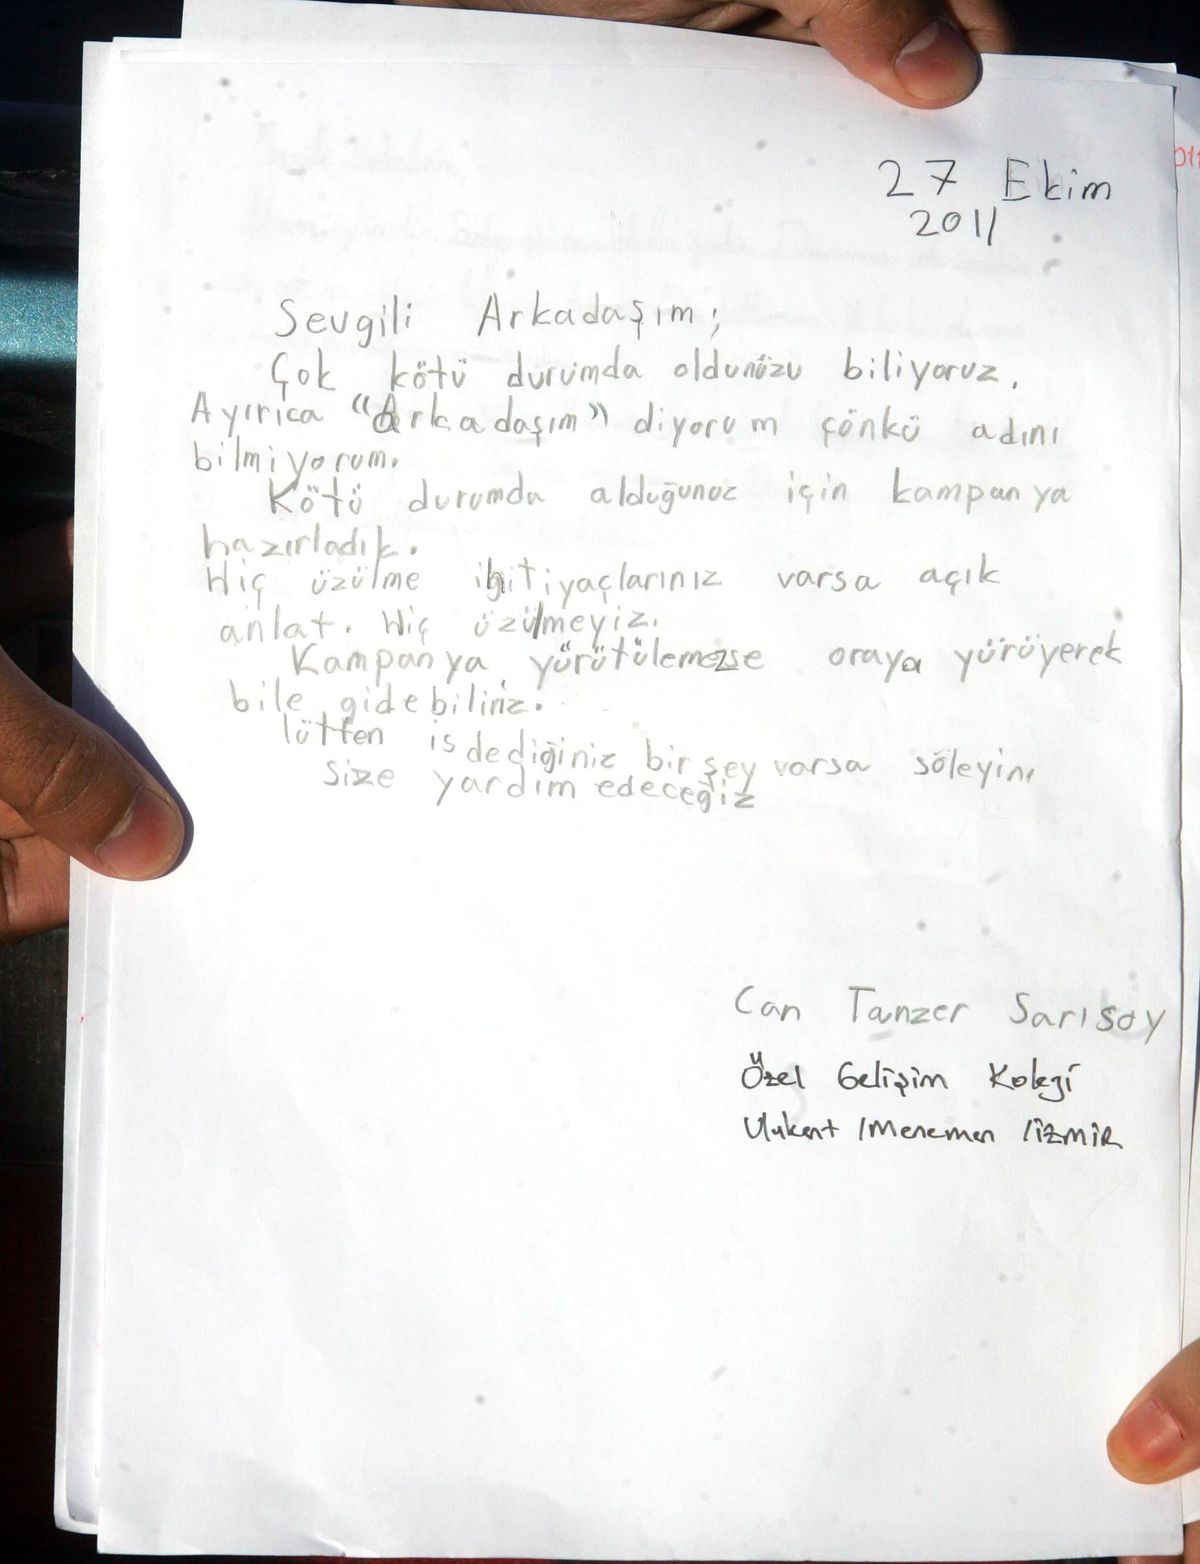 27 Ekim
2011
Sevgili Arkadaşım;
Çok kötü durumda oldunüzu biliyoruz.
Ayırıca "Arkadaşım" diyorum çönkü adını
bilmiyorum.
Kötü durumda alduğunuz için kampanya
hazırladık.
Hiç üzülme ihitiyaçlarınız varsa açık
anlat. Hiç üzülmeyiz.
Kampanya yürütülemezse oraya yürüyerek
bile gidebiliriz.
lütfen isdediğiniz bir şey varsa söleyin
size yardım edeceğiz
Can Tanzer Sarısoy
Özel Gelişim Koleji
Ulukent / Menemen / İZMİR